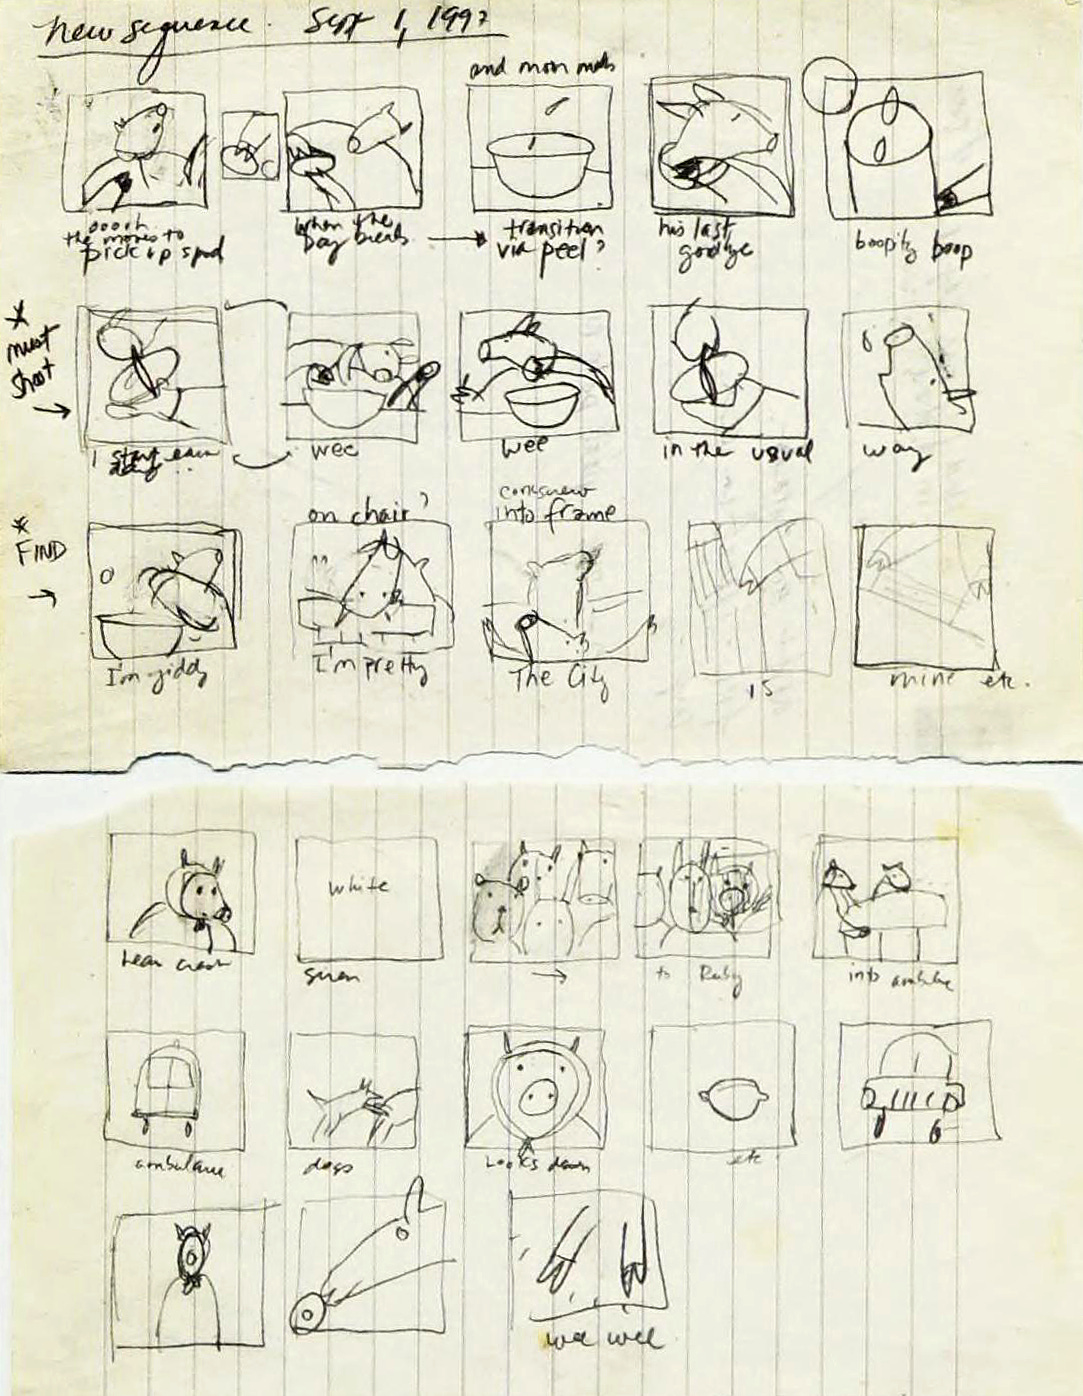 new sequence. Sept 1, 1992
and mom mads
ooooh
the moves to
pick up spud
when the
Day breaks
transition
via peel?
his last
goodbye
boopity boop
*
must
shoot
I start each
day ..
wee
wee
in the usual
way
*
FIND
on chair?
corkscrew
into frame
I'm giddy
I'm pretty
The City
is
mine etc.
hear crash
white
siren
to Ruby
into ambulance
ambulance
dogs
Looks down
etc
wee wee